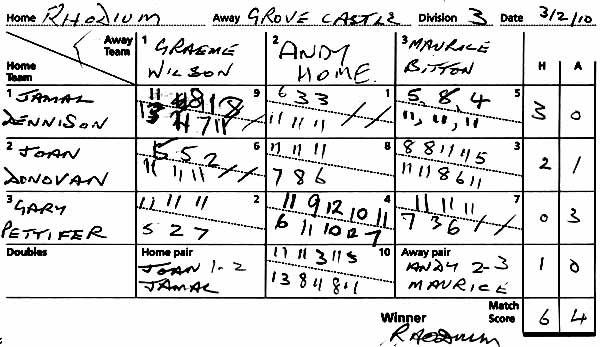 Home RHODIUM Away GROVE CASTLE Division 3 Date 3/2/10
Away Team 1 GRAEME WILSON 2 ANDY HOME 3 MAURICE BITTON H A
Home Team
1 JAMAL DENNISON 9 1 5 3 0
6 3 3
11 11 11
5, 8, 4
11, 11, 11
2 JOAN DONOVAN 6 8 3 2 1
5 5 2
11 11 11
11 11 11
7 8 6
8 8 11 11 5
11 11 8 6 11
3 GARY PETTIFER 2 4 7 0 3
11 11 11
5 2 7
11 9 12 10 11
6 11 10 12 7
11 11 11
7 3 6
Doubles Home pair 10 Away pair
JOAN 1-2
JAMAL
11 11 3 11 5
13 8 11 8 11
ANDY 2-3
MAURICE
1 0
Match Score 6 4
Winner
RHODIUM